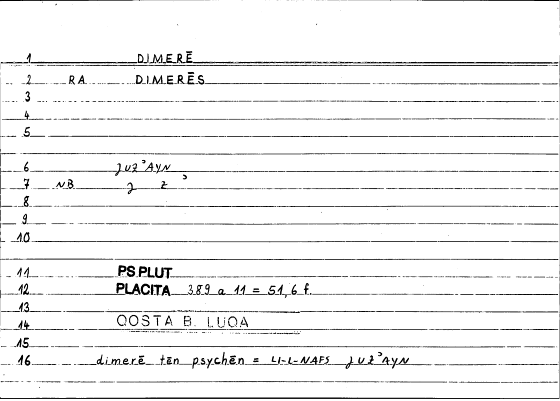 1 DIMERĒ
2 RA DIMERĒS
3
4
5
6 ǧUZʾAYN
7 NB ǧ z ʾ
8
9
10
11 PS.PLUT
12 PLACITA 389 a 11 = 51,6 f.
13
14 QOSTA B. LUQA
15
16 dimerē tēn psychēn = LI-L-NAFS ǧUZʾAYN